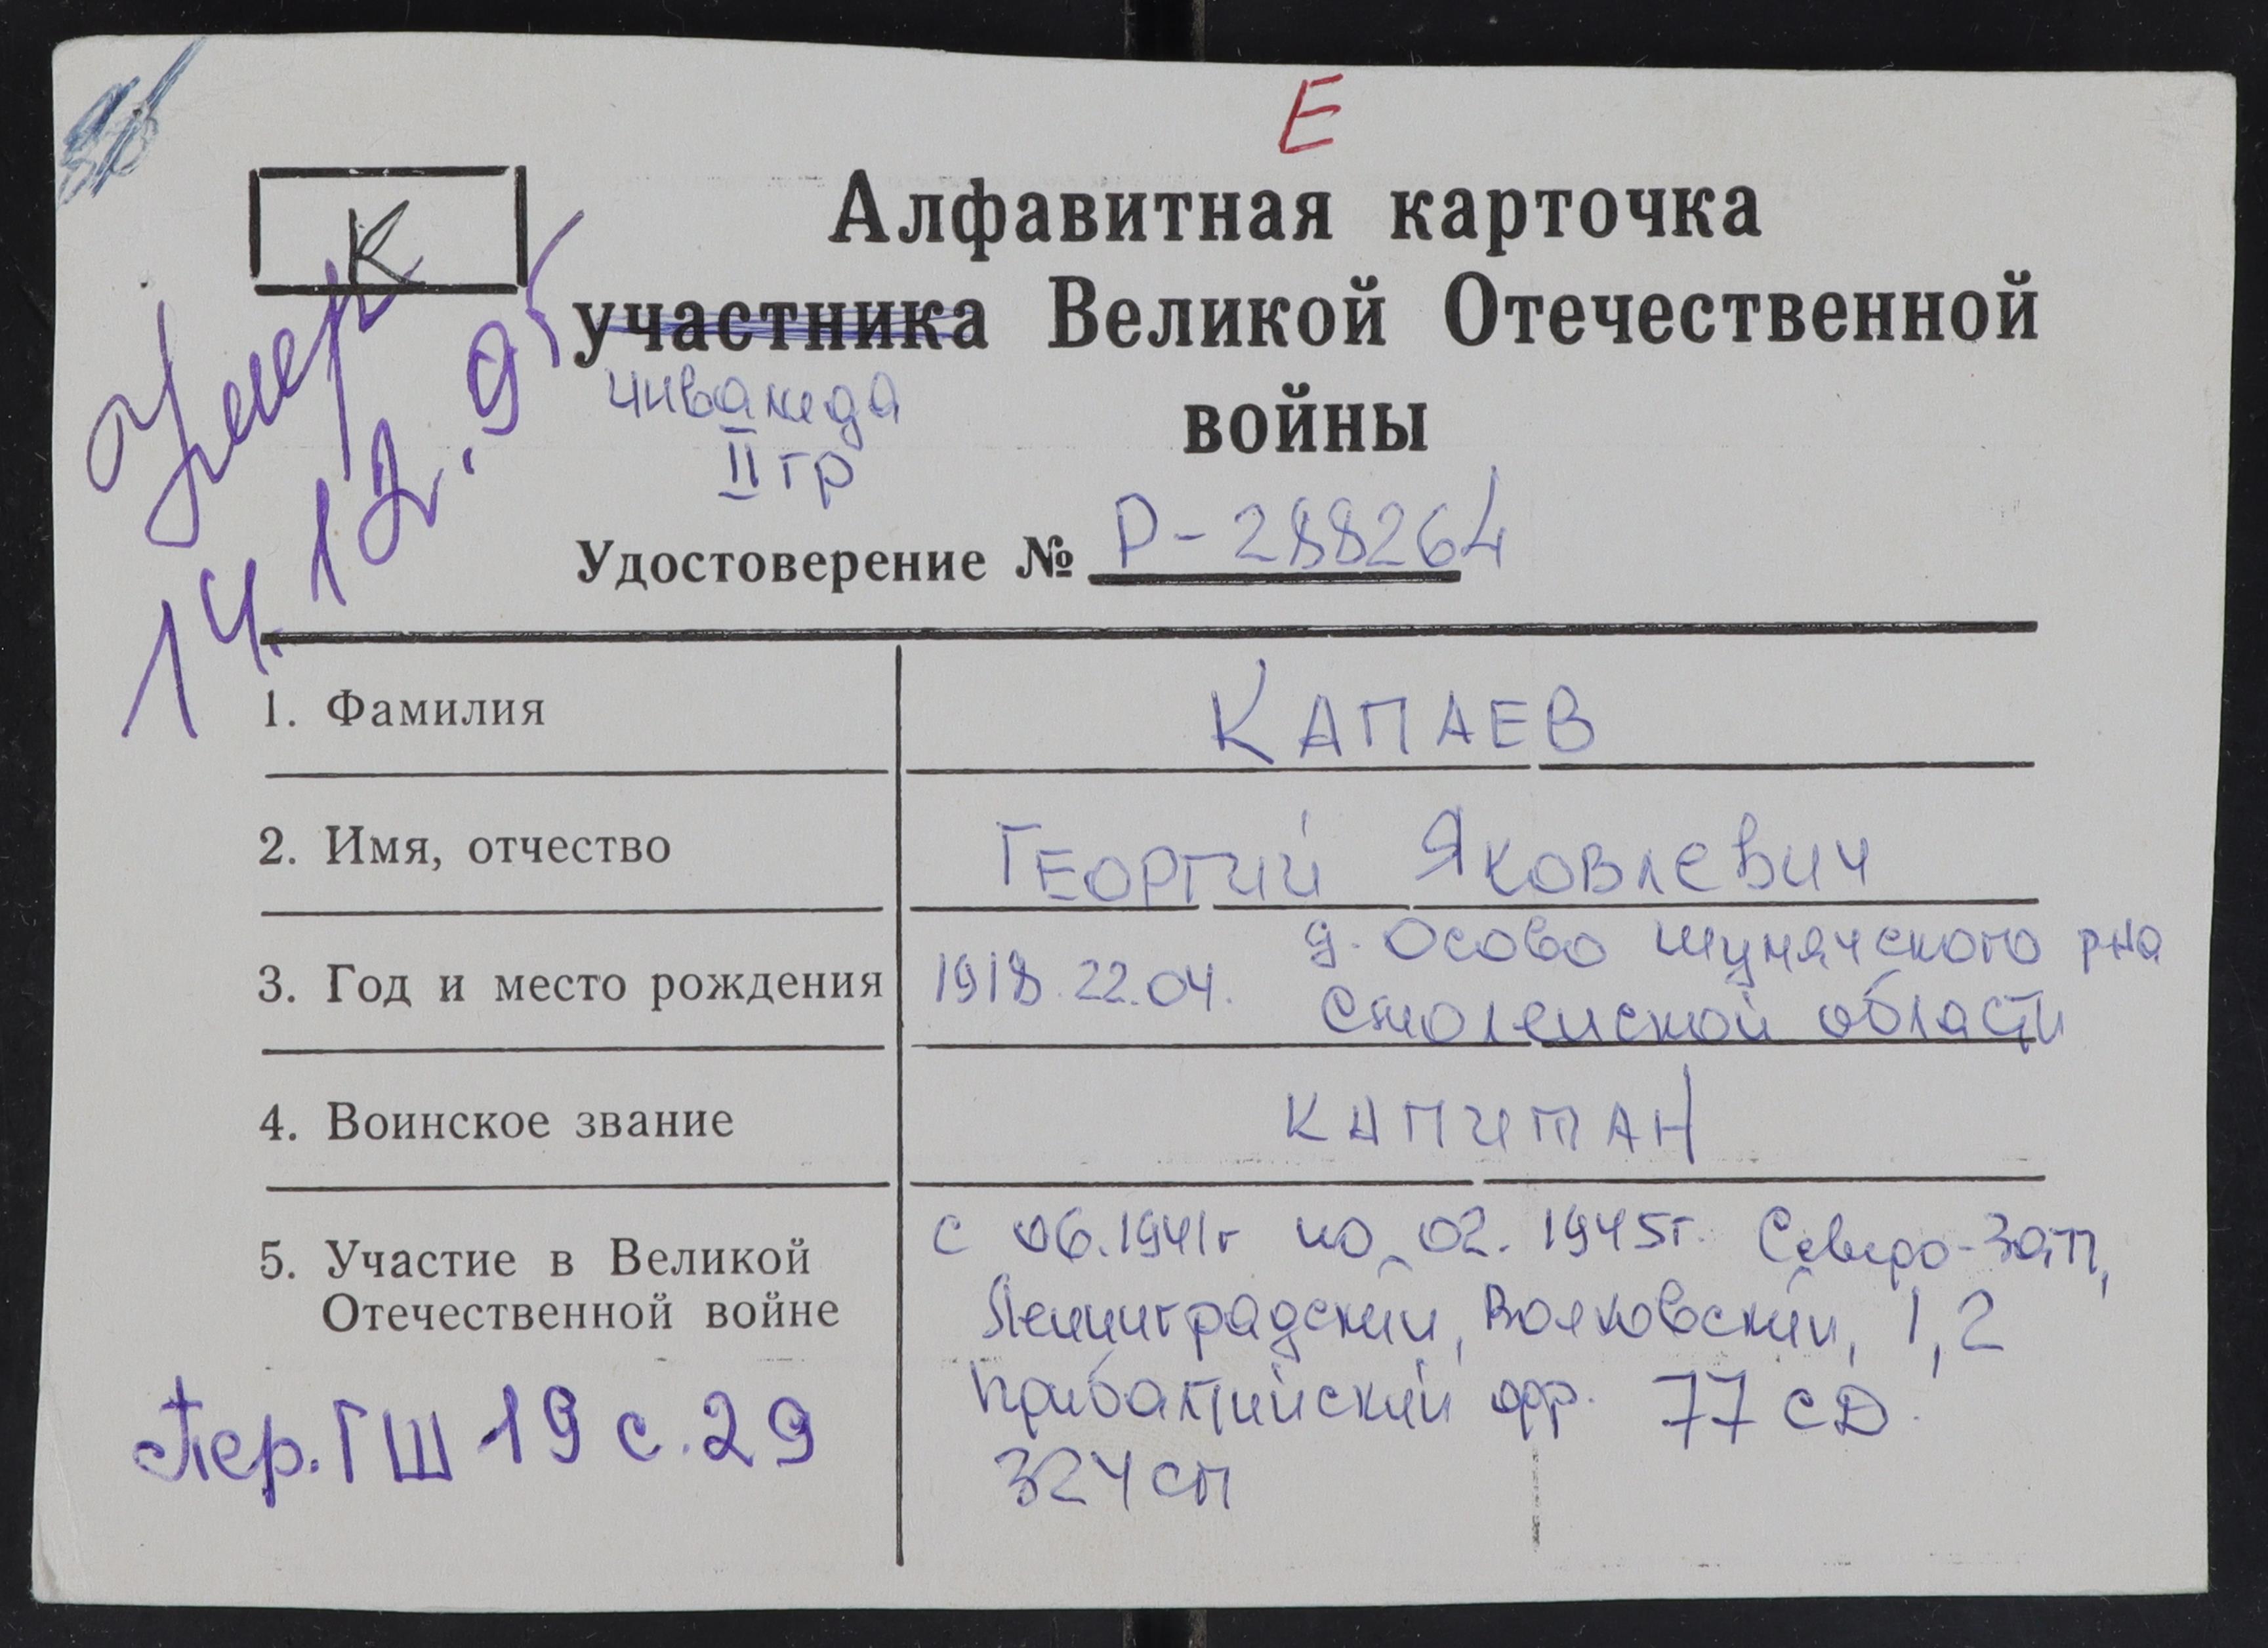 Е
К
Алфавитная карточка
участника Великой Отечественной
инвалида
войны
II гр
Умер
14.12.95
Удостоверение № Р-288264
1. Фамилия
КАПАЕВ
2. Имя, отчество
ГЕОРГИЙ ЯКОВЛЕВИЧ
3. Год и место рождения
1918.22.04.
д. Осово Шумячского р-на
Смоленской области
4. Воинское звание
КАПИТАН
5. Участие в Великой
Отечественной войне
с 06.1941г по 02.1945г. Северо-Зап,
Ленинградский, Волховский, 1,2
Прибалтийский фр. 77 СД.
324 сп
Пер. ГШ 19 с. 29